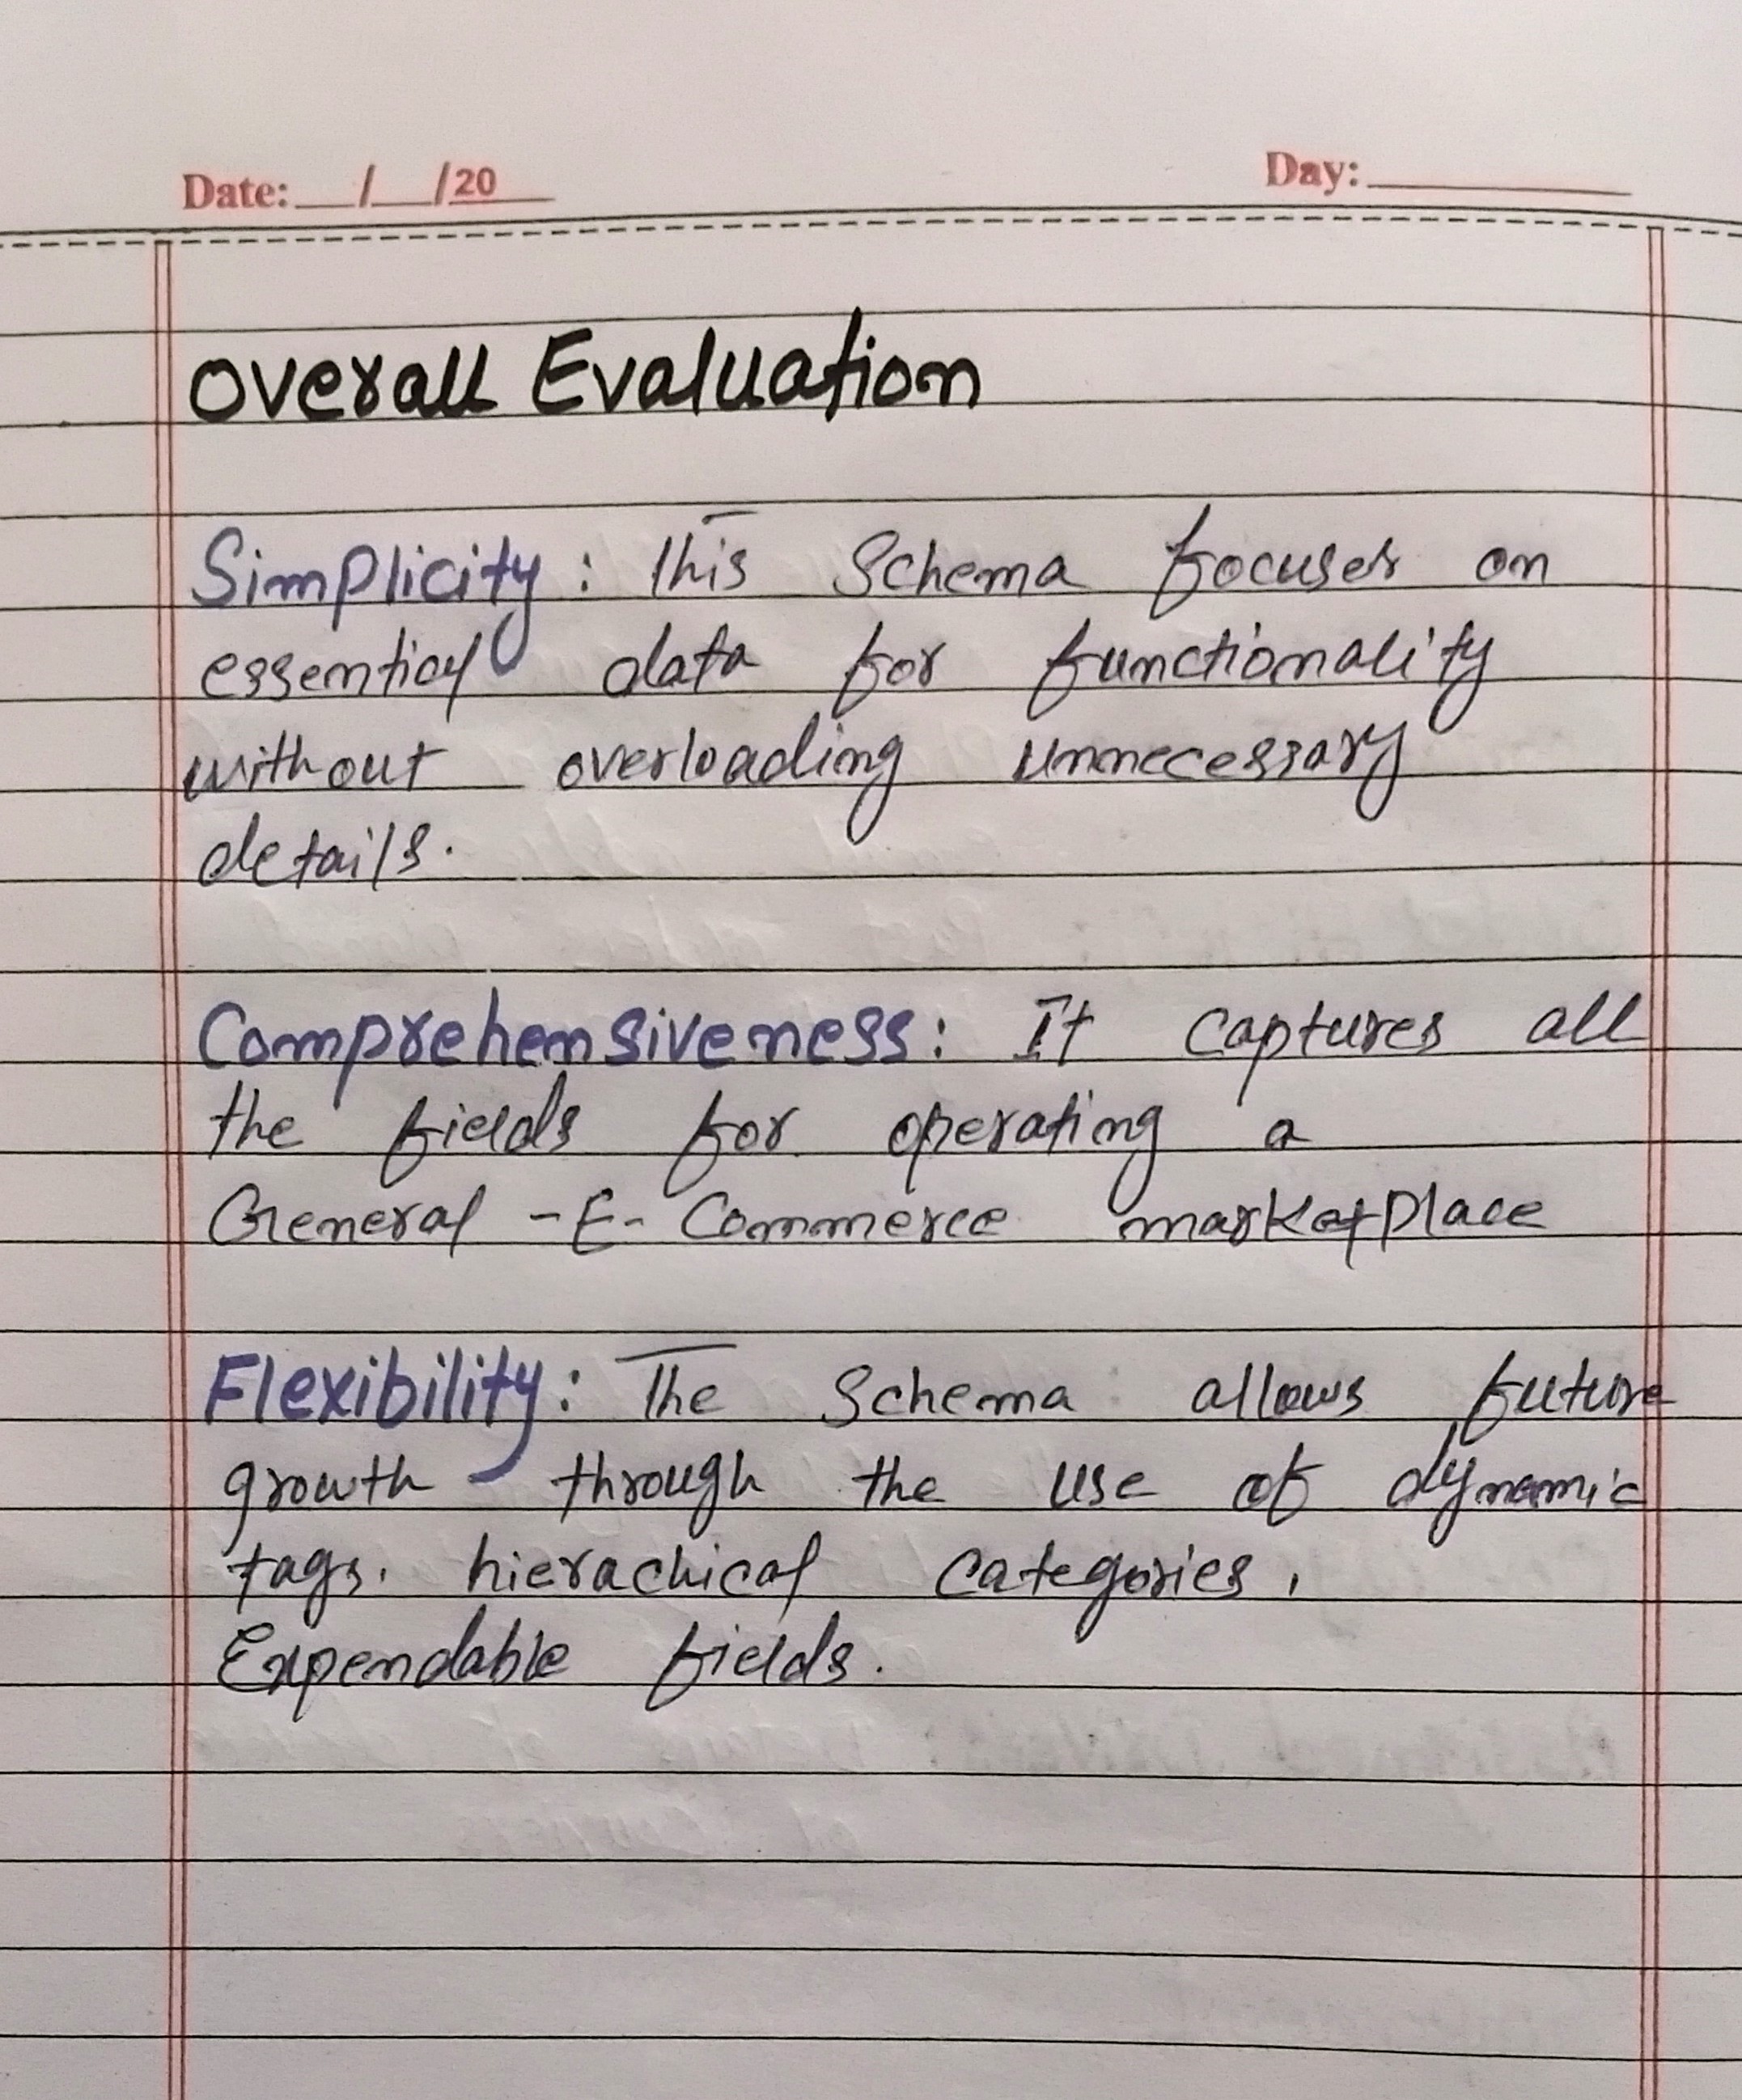 Date: __/__/20__ Day: ______
Overall Evaluation
Simplicity: This Schema focuses on
essential data for functionality
without overloading unnecessary
details.
Comprehensiveness: It captures all
the fields for operating a
General -E- Commerce marketplace
Flexibility: The Schema allows future
growth through the use of dynamic
tags, hierachical categories,
Expendable fields.